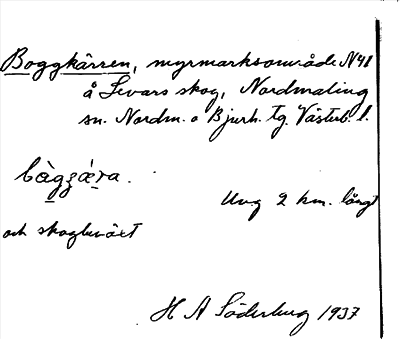 Boggkärren, myrmarksområde N41
å Levars skog, Nordmaling
sn. Nordm. o Bjurh. tg. Västerb. l.
Ung 2 km. långt
och skogbeväxt
H A Söderberg 1937